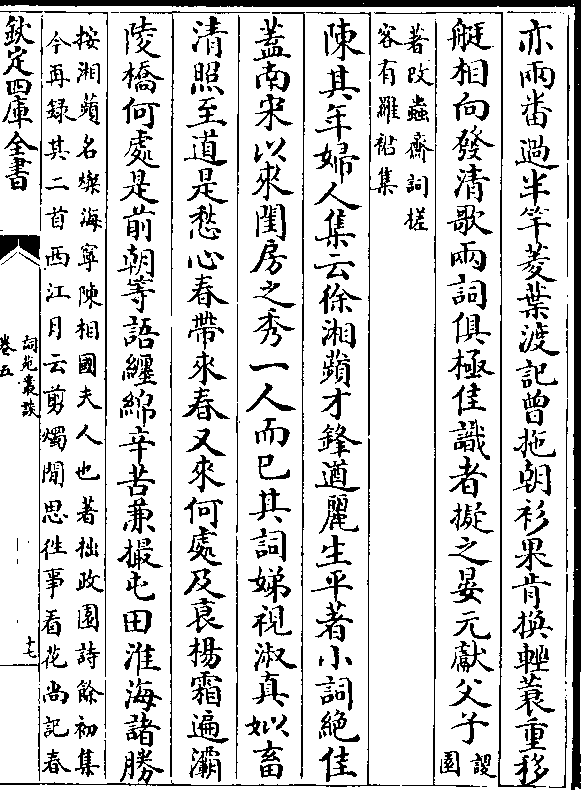 亦兩番過半竿菱葉渡記曾拖朝衫果肯換輕蓑重移
艇相向發清歌兩詞俱極佳識者擬之晏元獻父子謖園
著改蟲齋詞槎
客有雞窗集
陳其年婦人集云徐湘蘋才鋒遒麗生平著小詞絕佳
蓋南宋以來閨房之秀一人而已其詞娣視淑真姒畜
清照至道是愁心春帶來春又來何處及衰楊霜遍灞
陵橋何處是前朝等語纏綿辛苦兼撮屯田淮海諸勝
按湘蘋名燦海寧陳相國夫人也著拙政園詩餘初集
今再録其二首西江月云剪燭閒思徃事看花尚記春
欽定四庫全書
詞苑叢談
卷五
十七